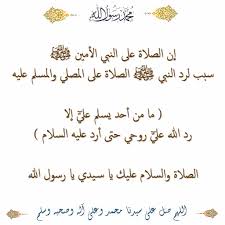 محمد رسول الله
إن الصلاة على النبي الأمين ﷺ
سبب لرد النبي ﷺ الصلاة على المصلي والمسلم عليه
( ما من أحد يسلم عليَّ إلا
رد الله عليَّ روحي حتى أرد عليه السلام )
الصلاة والسلام عليك يا سيدي يا رسول الله
اللهم صل على سيدنا محمد وعلى آله وصحبه وسلم